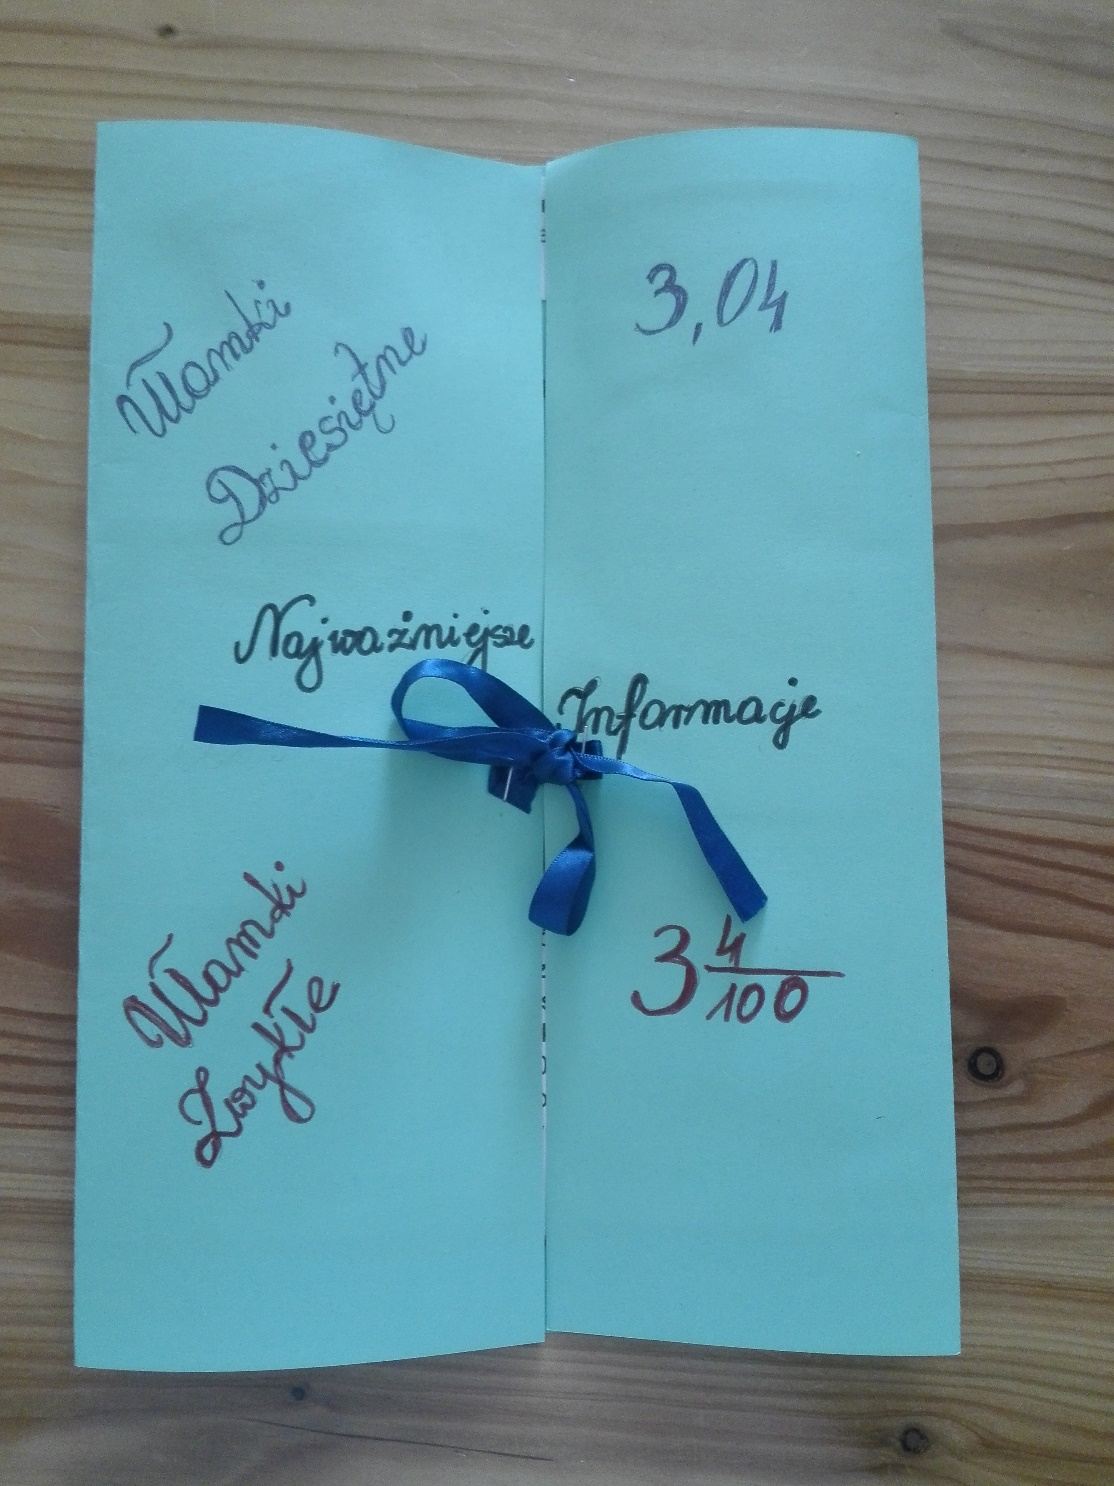 Ułamki
Dziesiętne
3,04
Najważniejsze
Informacje
Ułamki
Zwykłe
3 4/100